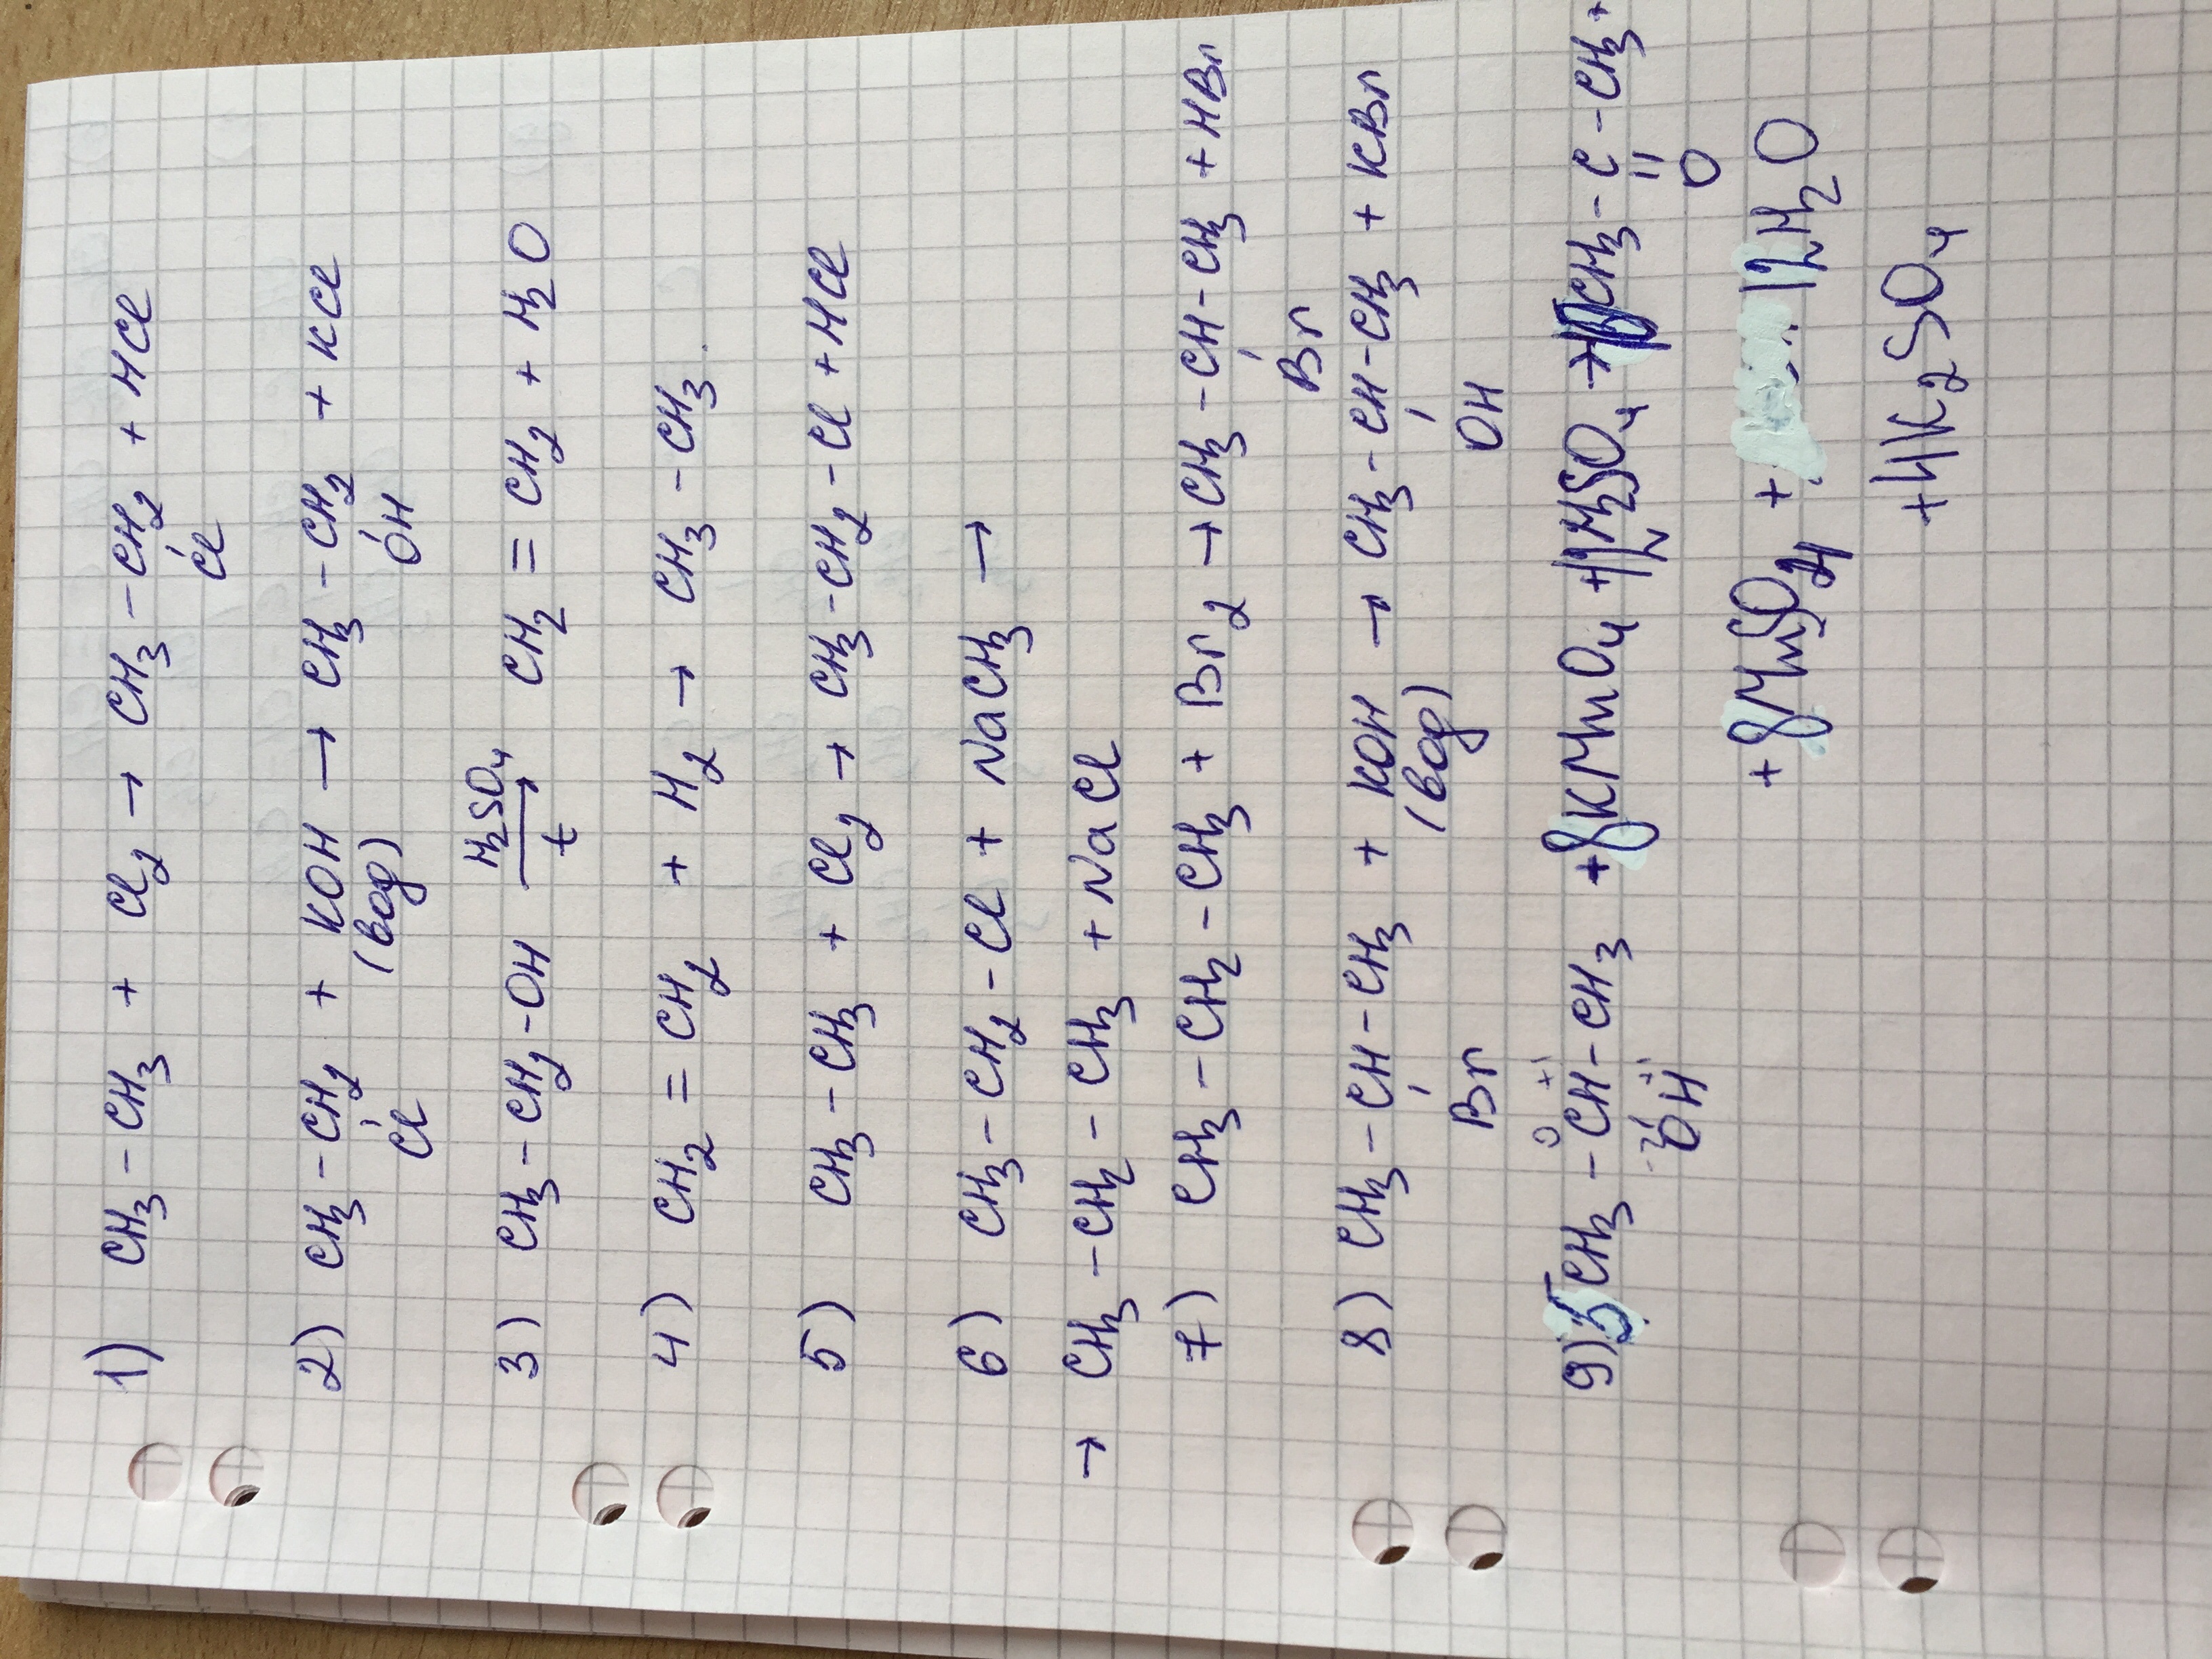 1) CH₃ - CH₃ + Cl₂ → CH₃ - CH₂ + HCl
Cl
2) CH₃ - CH₂ + KOH → CH₃ - CH₂ + KCl
Cl (вод) OH
H₂SO₄
3) CH₃ - CH₂ - OH → CH₂ = CH₂ + H₂O
t
4) CH₂ = CH₂ + H₂ → CH₃ - CH₃.
5) CH₃ - CH₃ + Cl₂ → CH₃ - CH₂ - Cl + HCl
6) CH₃ - CH₂ - Cl + NaCH₃ →
→ CH₃ - CH₂ - CH₃ + NaCl
7) CH₃ - CH₂ - CH₃ + Br₂ → CH₃ - CH - CH₃ + HBr
Br
8) CH₃ - CH - CH₃ + KOH → CH₃ - CH - CH₃ + KBr
Br (вод) OH
0 +1
9) 5CH₃ - CH - CH₃ + 8KMnO₄ + 12H₂SO₄ → CH₃ - C - CH₃ +
-2 OH +1 O
+ 8MnSO₄ + 12H₂O
+ 4K₂SO₄